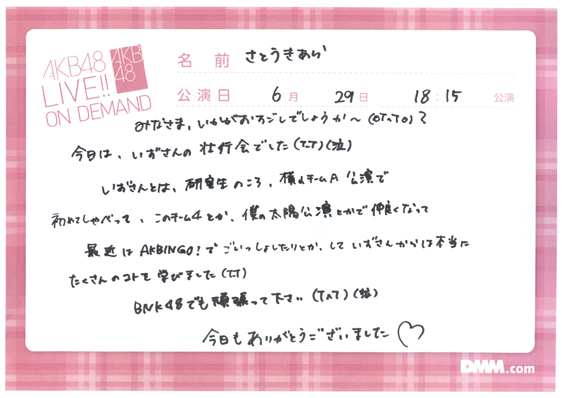 AKB48
LIVE!!
ON DEMAND
AKB
48
名前 さとうきあら
公演日 6月 29日 18:15 公演
みなさま、いかがおすごしでしょうか〜(OTㅅTO)?
今日は、いずさんの壮行会でした(T_T)(泣)
いずさんとは、研究生のころ、横山チームA公演で
初めてしゃべって、このチーム4とか、僕の太陽公演とかで仲良くなって
最近はAKBINGO!でごいっしょしたりとか、して いずさんからは本当に
たくさんのコトを学びました(T.T)
BNK48でも頑張って下さい(TㅅT)(泣)
今日もありがとうございました♡
DMM.com